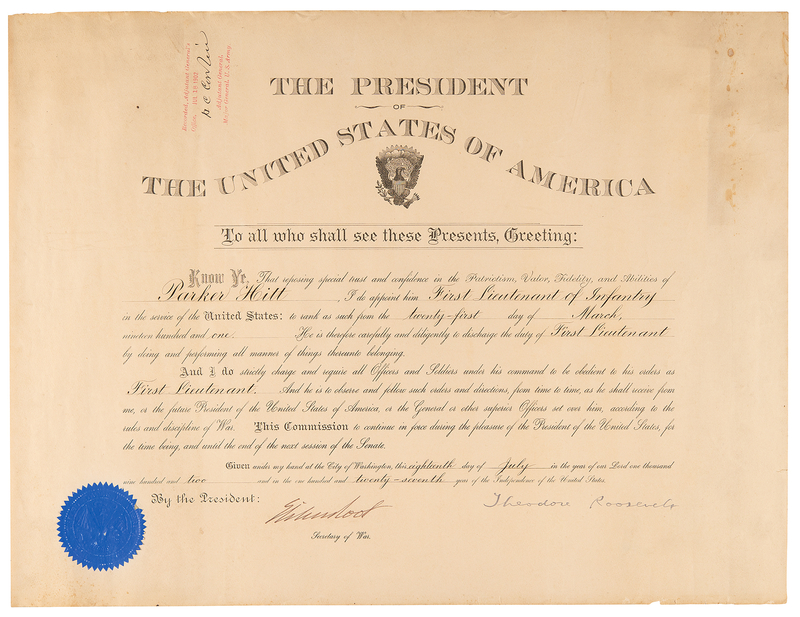 Recorded, Adjutant General's
Office, JUL 19 1902
H C Corbin
Adjutant General,
Major General, U.S. Army
THE PRESIDENT
OF
THE UNITED STATES OF AMERICA
To all who shall see these Presents, Greeting:
Know Ye, That reposing special trust and confidence in the Patriotism, Valor, Fidelity, and Abilities of
Parker Hitt, I do appoint him First Lieutenant of Infantry
in the service of the United States: to rank as such from the twenty-first day of March,
nineteen hundred and one. He is therefore carefully and diligently to discharge the duty of First Lieutenant
by doing and performing all manner of things thereunto belonging.
And I do strictly charge and require all Officers and Soldiers under his command to be obedient to his orders as
First Lieutenant. And he is to observe and follow such orders and directions, from time to time, as he shall receive from
me, or the future President of the United States of America, or the General or other superior Officers set over him, according to the
rules and discipline of War. This Commission to continue in force during the pleasure of the President of the United States, for
the time being, and until the end of the next session of the Senate.
Given under my hand at the City of Washington, this eighteenth day of July in the year of our Lord one thousand
nine hundred and two and in the one hundred and twenty-seventh year of the Independence of the United States.
By the President:
Theodore Roosevelt
Elihu Root
Secretary of War.